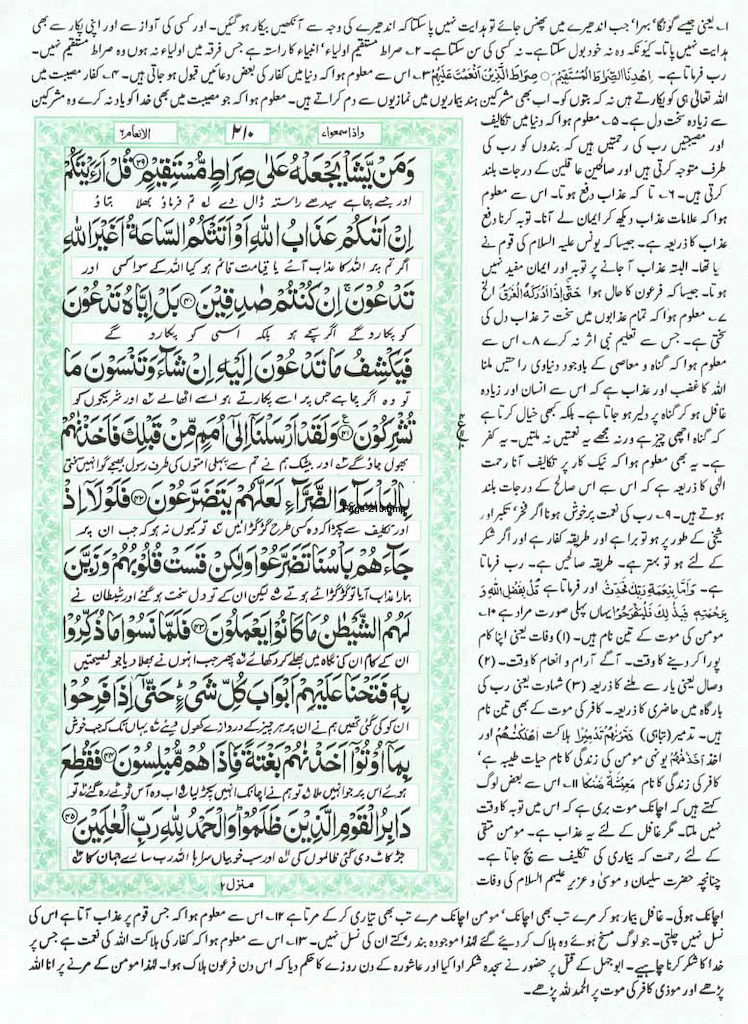 ۱۔ یعنی جیسے گونگا' بہرا' جب اندھیرے میں پھنس جائے تو ہدایت نہیں پا سکتا کہ اندھیرے کی وجہ سے آنکھیں بیکار ہو گئیں۔ اور کسی کی آواز سے اور اپنی پکار سے بھی
ہدایت نہیں پاتا۔ کیونکہ وہ نہ خود بول سکتا ہے۔ نہ کسی کی سن سکتا ہے۔ ۲۔ صراط مستقیم اولیاء' انبیاء کا راستہ ہے جس فرقہ میں اولیاء نہ ہوں وہ صراط مستقیم نہیں۔
رب فرماتا ہے۔ اِهْدِنَا الصِّرَاطَ الْمُسْتَقِيْمَ ○ صِرَاطَ الَّذِيْنَ اَنْعَمْتَ عَلَيْهِمْ ۳۔ اس سے معلوم ہوا کہ دنیا میں کفار کی بعض دعائیں قبول ہو جاتی ہیں۔ ۴۔ کفار مصیبت میں
اللہ تعالٰی ہی کو پکارتے ہیں نہ کہ بتوں کو۔ اب بھی مشرکین ہند بیماریوں میں نمازیوں سے دم کراتے ہیں۔ معلوم ہوا کہ جو مصیبت میں بھی خدا کو یاد نہ کرے وہ مشرکین
سے زیادہ سخت دل ہے۔ ۵۔ معلوم ہوا کہ دنیا میں تکالیف
اور مصیبتیں رب کی رحمتیں ہیں کہ بندوں کو رب کی
طرف متوجہ کرتی ہیں اور صالحین عاقلین کے درجات بلند
کرتی ہیں۔ ۶۔ تا کہ عذاب دفع ہوتا۔ اس سے معلوم
ہوا کہ علامات عذاب دیکھ کر ایمان لے آنا۔ توبہ کرنا دفع
عذاب کا ذریعہ ہے۔ جیسا کہ یونس علیہ السلام کی قوم نے
پا تھا۔ البتہ عذاب آ جانے پر توبہ اور ایمان مفید نہیں
ہوتا۔ جیسا کہ فرعون کا حال ہوا حَتّٰى اِذَا اَدْرَكَهُ الْغَرَقُ الخ
۷۔ معلوم ہوا کہ تمام عذابوں میں سخت تر عذاب دل کی
سختی ہے۔ جس سے تعلیم نبی اثر نہ کرے ۸۔ اس سے
معلوم ہوا کہ گناہ و معاصی کے باوجود دنیاوی راحتیں ملنا
اللہ کا غضب اور عذاب ہے کہ اس سے انسان اور زیادہ
غافل ہو کر گناہ پر دلیر ہو جاتا ہے۔ بلکہ کبھی خیال کرتا ہے
کہ گناہ اچھی چیز ہے ورنہ مجھے یہ نعمتیں نہ ملتیں۔ یہ کفر
ہے۔ یہ بھی معلوم ہوا کہ نیک کار پر تکالیف آنا رحمت
الٰہی کا ذریعہ ہے کہ اس سے اس صالح کے درجات بلند
ہوتے ہیں۔ ۹۔ رب کی نعمت پر خوش ہونا اگر فخر' تکبر اور
شیخی کے طور پر ہو تو برا ہے اور طریقہ کفار ہے اور اگر شکر
کے لئے ہو تو بہتر ہے۔ طریقہ صالحین ہے۔ رب فرماتا
ہے۔ وَاَمَّا بِنِعْمَةِ رَبِّكَ فَحَدِّثْ اور فرماتا ہے قُلْ بِفَضْلِ اللّٰهِ وَ
بِرَحْمَتِهٖ فَبِذٰلِكَ فَلْيَفْرَحُوْا یہاں پہلی صورت مراد ہے ۱۰۔
مومن کی موت کے تین نام ہیں۔ (۱) وفات یعنی اپنا کام
پورا کر دینے کا وقت۔ آگے آرام و انعام کا وقت۔ (۲)
وصال یعنی یار سے ملنے کا ذریعہ (۳) شہادت یعنی رب کی
بارگاہ میں حاضری کا ذریعہ۔ کافر کی موت کے بھی تین نام
ہیں۔ تدمیر (تباہی) دَمَّرْنٰهُمْ تَدْمِيْرًا ہلاکت اَهْلَكْنٰهُمْ اور
اخذ اَخَذْنٰهُمْ یونہی مومن کی زندگی کا نام حیات طیبہ ہے'
کافر کی زندگی کا نام مَعِيْشَةً ضَنْكًا ۱۱۔ اس سے بعض لوگ
کہتے ہیں کہ اچانک موت بری ہے کہ اس میں توبہ کا وقت
نہیں ملتا۔ مگر غافل کے لئے یہ عذاب ہے۔ مومن متقی
کے لئے رحمت کہ بیماری کی تکلیف سے بچ جاتا ہے۔
چنانچہ حضرت سلیمان و موسیٰ و عزیر علیہم السلام کی وفات
واذاسمعوا ۷
۲۱۰
الانعام ۶
وَمَنْ يَّشَاْ يَجْعَلْهُ عَلٰى صِرَاطٍ مُّسْتَقِيْمٍ ﴿۳۹﴾ قُلْ اَرَءَيْتَكُمْ
اور جسے چاہے سیدھے راستہ ڈال دے ۲ تم فرماؤ بھلا بتاؤ
اِنْ اَتٰىكُمْ عَذَابُ اللّٰهِ اَوْ اَتَتْكُمُ السَّاعَةُ اَغَيْرَ اللّٰهِ
اگر تم پر اللہ کا عذاب آئے یا قیامت قائم ہو کیا اللہ کے سوا کسی اور
تَدْعُوْنَ اِنْ كُنْتُمْ صٰدِقِيْنَ ﴿۴۰﴾ بَلْ اِيَّاهُ تَدْعُوْنَ
کو پکارو گے اگر سچے ہو بلکہ اسی کو پکارو گے
فَيَكْشِفُ مَا تَدْعُوْنَ اِلَيْهِ اِنْ شَآءَ وَتَنْسَوْنَ مَا
تو وہ اگر چاہے جس پر اسے پکارتے ہو اسے اٹھا لے اور شریکوں کو
تُشْرِكُوْنَ ﴿۴۱﴾ وَلَقَدْ اَرْسَلْنَآ اِلٰٓى اُمَمٍ مِّنْ قَبْلِكَ فَاَخَذْنٰهُمْ
بھول جاؤ گے اور بیشک ہم نے تم سے پہلی امتوں کی طرف رسول بھیجے تو انہیں سختی
بِالْبَاْسَآءِ وَالضَّرَّآءِ لَعَلَّهُمْ يَتَضَرَّعُوْنَ ﴿۴۲﴾ فَلَوْلَآ اِذْ
Page-210.bmp
اور تکلیف سے پکڑا کہ وہ کسی طرح گڑگڑائیں تو کیوں نہ ہو کہ جب ان پر
جَآءَهُمْ بَاْسُنَا تَضَرَّعُوْا وَلٰكِنْ قَسَتْ قُلُوْبُهُمْ وَزَيَّنَ
ہمارا عذاب آیا تو گڑگڑائے ہوتے لیکن ان کے تو دل سخت ہو گئے اور شیطان نے
لَهُمُ الشَّيْطٰنُ مَا كَانُوْا يَعْمَلُوْنَ ﴿۴۳﴾ فَلَمَّا نَسُوْا مَا ذُكِّرُوْا
ان کے کام ان کی نگاہ میں بھلے کر دکھائے پھر جب انہوں نے بھلا دیا جو نصیحتیں
بِهٖ فَتَحْنَا عَلَيْهِمْ اَبْوَابَ كُلِّ شَيْءٍ حَتّٰٓى اِذَا فَرِحُوْا
ان کو کی گئی تھیں ہم نے ان پر ہر چیز کے دروازے کھول دیئے یہاں تک کہ جب خوش
بِمَآ اُوْتُوْٓا اَخَذْنٰهُمْ بَغْتَةً فَاِذَا هُمْ مُّبْلِسُوْنَ ﴿۴۴﴾ فَقُطِعَ
ہوئے اس پر جو انہیں ملا تو ہم نے اچانک انہیں پکڑ لیا اب وہ آس ٹوٹے رہ گئے تو
دَابِرُ الْقَوْمِ الَّذِيْنَ ظَلَمُوْا وَالْحَمْدُ لِلّٰهِ رَبِّ الْعٰلَمِيْنَ ﴿۴۵﴾
جڑ کاٹ دی گئی ظالموں کی اور سب خوبیاں سراہا اللہ رب سارے جہان کا
منزل ۲
اچانک ہوئی۔ غافل بیمار ہو کر مرے تب بھی اچانک' مومن اچانک مرے تب بھی تیاری کر کے مرتا ہے ۱۲۔ اس سے معلوم ہوا کہ جس قوم پر عذاب آتا ہے اس کی
نسل نہیں چلتی۔ جو لوگ مسخ ہوئے وہ ہلاک کر دیئے گئے لہٰذا موجودہ بندر' کتے ان کی نسل نہیں۔ ۱۳۔ اس سے معلوم ہوا کہ کفار کی ہلاکت اللہ کی نعمت ہے جس پر
خدا کا شکر کرنا چاہیے۔ ابوجہل کے قتل پر حضور نے سجدہ شکر ادا کیا اور عاشورہ کے دن روزے کا حکم دیا کہ اس دن فرعون ہلاک ہوا۔ لہٰذا مومن کے مرنے پر انا اللہ
پڑھے اور موذی کافر کی موت پر الحمد للہ پڑھے۔